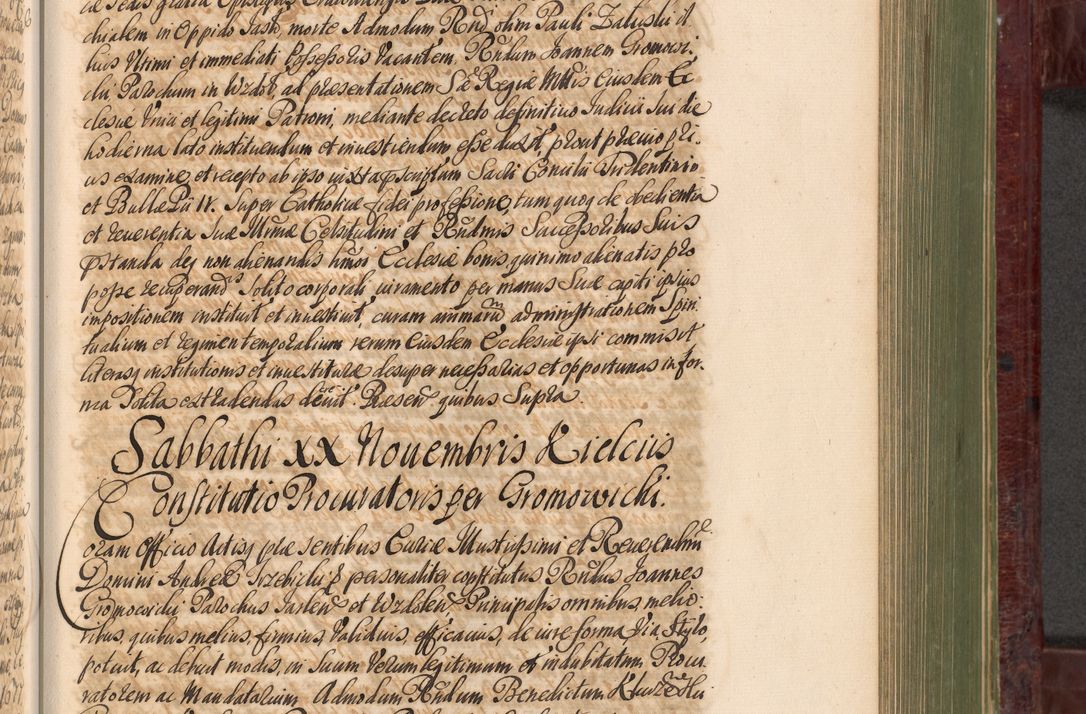 chialem in Oppido Jasło, morte Admodum Rnd olim Pauli Załuski il
lius Ultimi et immediati Possessoris vacantem, Rndum Joannem Gromowi
cki Parochum in Wzdół, ad præsentationem Sæ Regiæ Mttis Eiusdem Ec
clesiæ Unici et legitimi Patroni, mediante decreto definitivo Iudicii Sui die
hodierna lato instituendum et investiendum esse duxit, prout prævio pri
us examine, et recepto ab ipso iuxta præscriptum Sacri Concilii Tridentini
et Bullæ Pii IV. Super Catholicæ fidei professione, tum quoq de obedientia
et reverentia Suæ Illrmæ Celsitudini et Rndmis Successoribus Suis
præstanda deq non alienandis hmoi Ecclesiæ bonis quinimo alienatis pro
posse recuperand Solito corporali iuramento per manus Suæ capiti ipsius
impositionem instituit et investivit, curam animarum administrationem Spiri
tualium et regimen temporalium rerum Eiusdem Ecclesiæ ipsi commisit
literasq institutionis et investituræ desuper necessarias et opportunas in for
ma Solita extradendas decrevit. Præsen quibus Supra.
Sabbathi XX Novembris Kielciis
Constitutio Procuratoris per Gromowicki.
Coram Officio Actisq præsentibus Curiæ Illustrissimi et Reverendmi
Domini Andreæ Trzebicki E personaliter constitutus Rndus Joannes
Gromowicki Parochus Jaslen et Wzdolen Principalis omnibus melio
ribus, quibus melius, firmius, validius, efficacius, de iure forma via Stylo
potuit, ac debuit modis, in Suum verum legitimum et indubitatum Procu
ratorem ac Mandatarium Admodum Rndum Benedictum